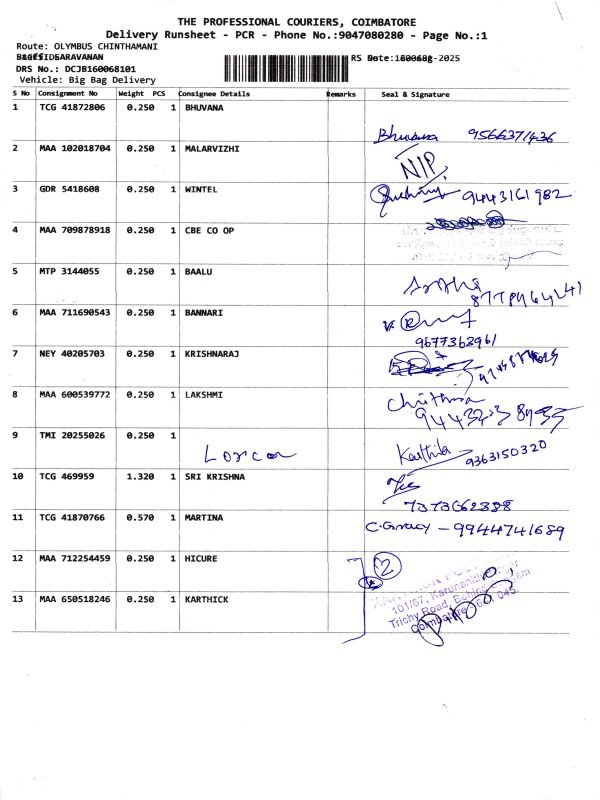 THE PROFESSIONAL COURIERS, COIMBATORE
Delivery Runsheet - PCR - Phone No.:9047080280 - Page No.:1
Route: OLYMBUS CHINTHAMANI
SARAVANAN RS Date: -2025
DRS No.: DCJB160068101
Vehicle: Big Bag Delivery
S No Consignment No Weight PCS Consignee Details Remarks Seal & Signature
1 TCG 41872806 0.250 1 BHUVANA
Bhuvana 9566371436
2 MAA 102018704 0.250 1 MALARVIZHI
NIP
3 GDR 5418608 0.250 1 WINTEL
9443161982
4 MAA 709878918 0.250 1 CBE CO OP
5 MTP 3144055 0.250 1 BAALU
6 MAA 711690543 0.250 1 BANNARI
9677362961
7 NEY 40205703 0.250 1 KRISHNARAJ
8 MAA 600539772 0.250 1 LAKSHMI
Chithra
9 TMI 20255026 0.250 1
Lorcan Karthika 9363150320
10 TCG 469959 1.320 1 SRI KRISHNA
7373662388
11 TCG 41870766 0.570 1 MARTINA
C. Gracy - 9944741689
12 MAA 712254459 0.250 1 HICURE
2
101/67, Karunanithi
13 MAA 650518246 0.250 1 KARTHICK
Trichy Road,
Coimbatore - 641 045.